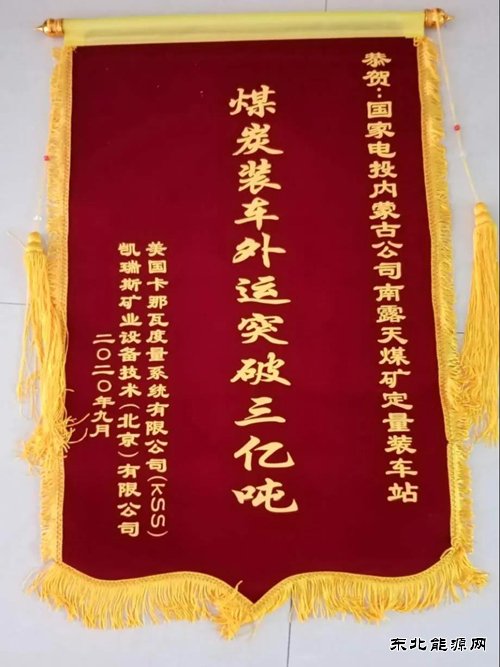 恭贺:国家电投内蒙古公司南露天煤矿定量装车站
煤炭装车外运突破三亿吨
美国卡那瓦度量系统有限公司(KSS)
凯瑞斯矿业设备技术(北京)有限公司
二〇二〇年九月
东北能源网